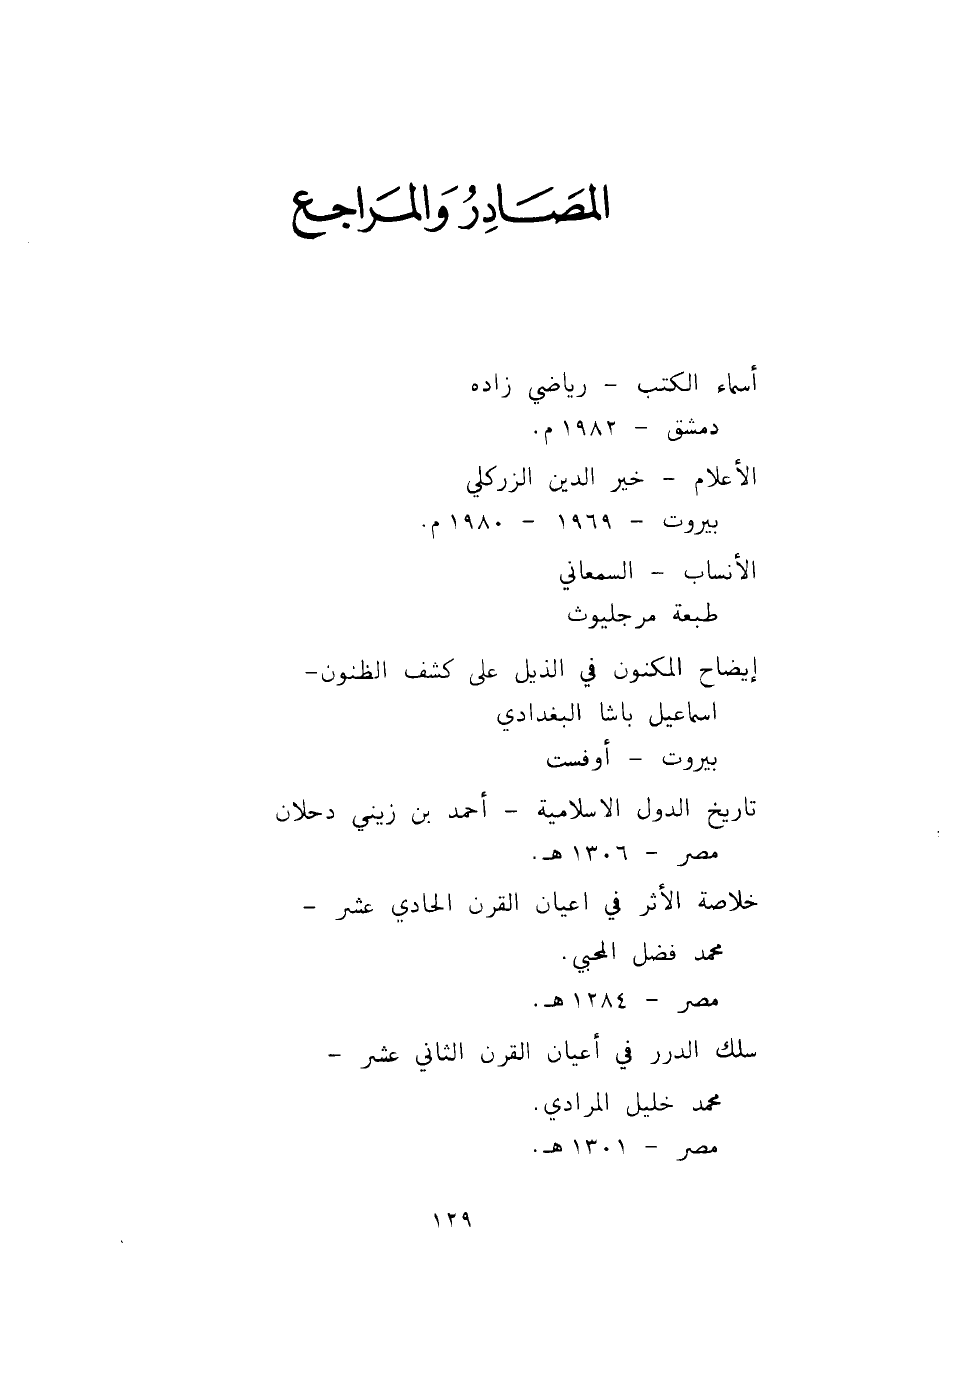 المَصَادِرُ وَالمَرَاجع
أسماء الكتب - رياضي زاده
دمشق - ١٩٨٢ م.
الأعلام - خير الدين الزركلي
بيروت - ١٩٦٩ - ١٩٨٠ م.
الأنساب - السمعاني
طبعة مرجليوث
إيضاح المكنون في الذيل على كشف الظنون-
اسماعيل باشا البغدادي
بيروت - أوفست
تاريخ الدول الاسلامية - أحمد بن زيني دحلان
مصر - ١٣٠٦ هـ.
خلاصة الأثر في اعيان القرن الحادي عشر -
محمد فضل المحبي.
مصر - ١٢٨٤ هـ.
سلك الدرر في أعيان القرن الثاني عشر -
محمد خليل المرادي.
مصر - ١٣٠١ هـ.
١٢٩